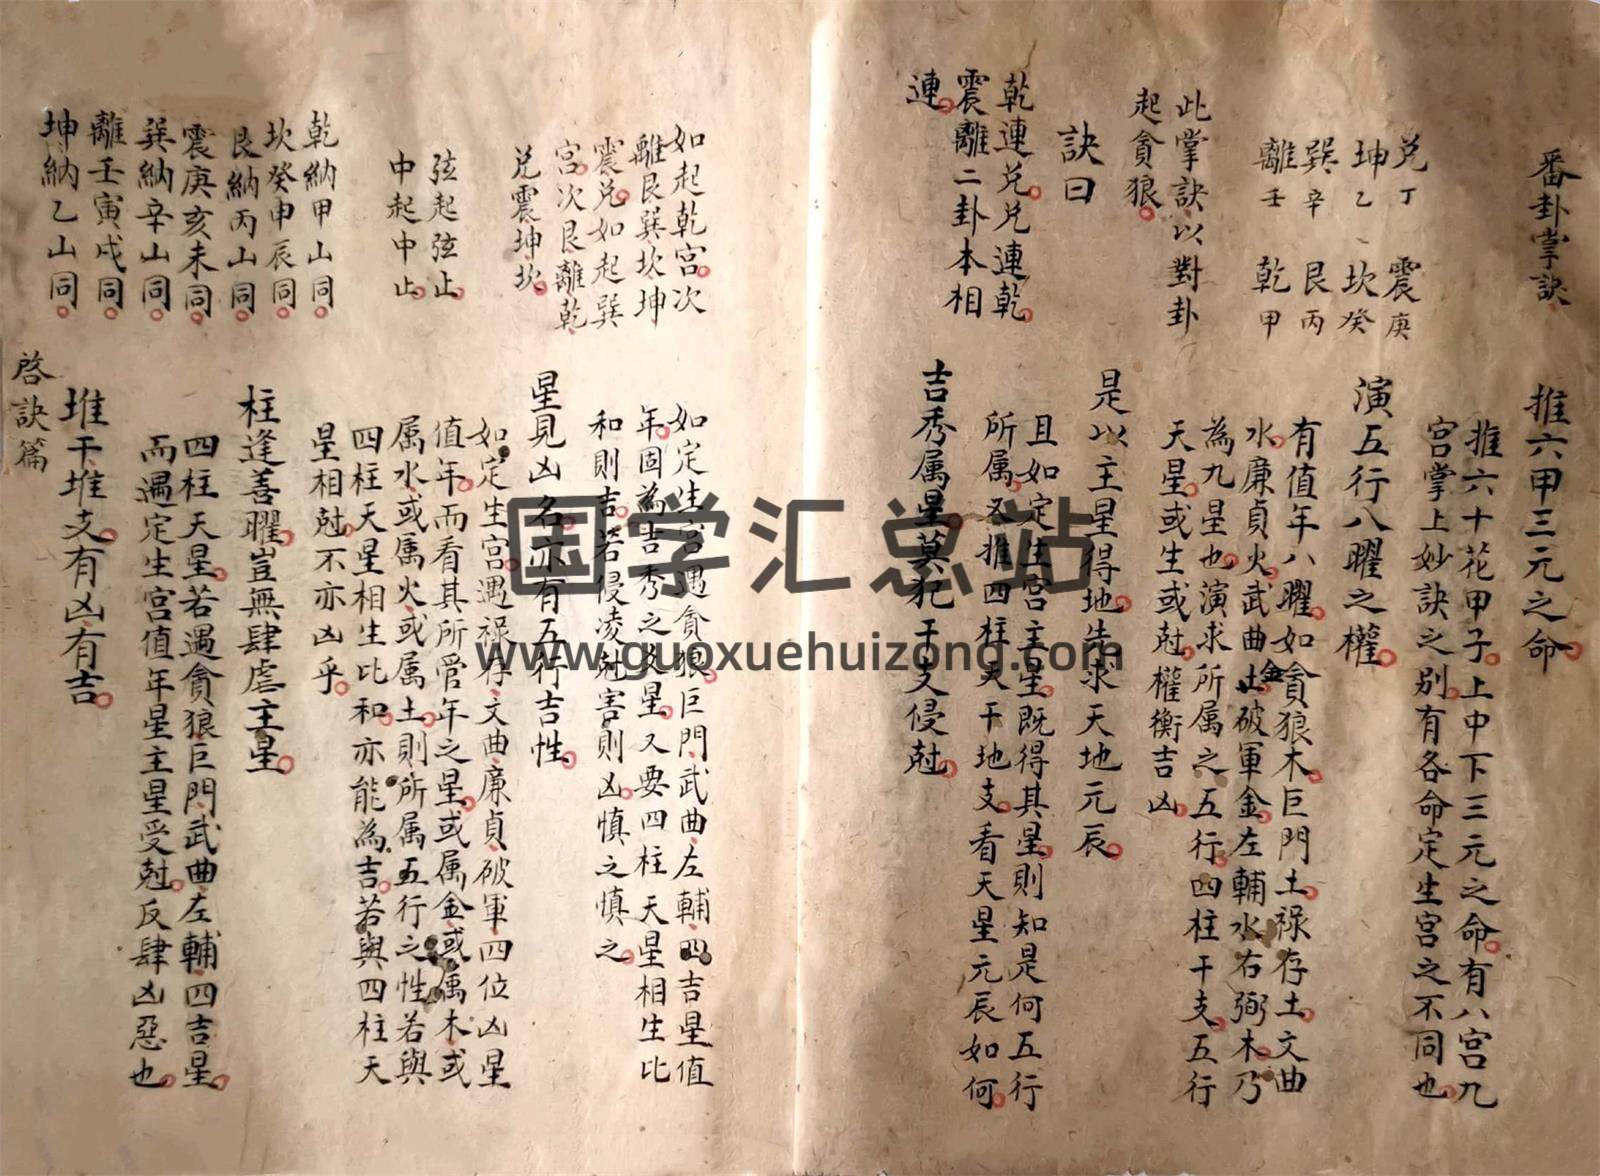 番卦掌訣
兌丁 震庚
坤乙 坎癸
巽辛 艮丙
離壬 乾甲
此掌訣以對卦
起貪狼
訣曰
乾連兌兌連乾
震離二卦本相
連
推六甲三元之命
推六十花甲子上中下三元之命有八宮九
宮掌上妙訣之別有各命定生宮之不同也
演五行八曜之權
有值年八曜如貪狼木巨門土祿存土文曲
水廉貞火武曲金破軍金左輔水右弼木乃
為九星也演求所属之五行四柱干支五行
天星或生或尅權衡吉凶
是以主星得地先求天地元辰
且如定生宮主星既得其星則知是何五行
所属又推四柱天干地支看天星元辰如何
吉秀属星莫犯干支侵尅
如起乾宮次
離艮巽坎坤
震兌如起巽
宮次艮離乾
兌震坤坎
弦起弦止
中起中止
乾納甲山同
坎癸申辰同
艮納丙山同
震庚亥未同
巽納辛山同
離壬寅戌同
坤納乙山同
如定生宮遇貪狼巨門武曲左輔四吉星值
年固為吉秀之美星又要四柱天星相生比
和則吉若侵凌尅害則凶慎之慎之
星見凶名亦有五行吉性
如定生宮遇祿存文曲廉貞破軍四位凶星
值年而看其所管年之星或属金或属木或
属水或属火或属土則所属五行之性若與
四柱天星相生比和亦能為吉若與四柱天
星相尅不亦凶乎
柱逢善曜豈無肆虐主星
四柱天星若遇貪狼巨門武曲左輔四吉星
而遇定生宮值年星主星受尅反肆凶惡也
堆干堆支有凶有吉
啓訣篇
国学汇总站
www.guoxuehuizong.com